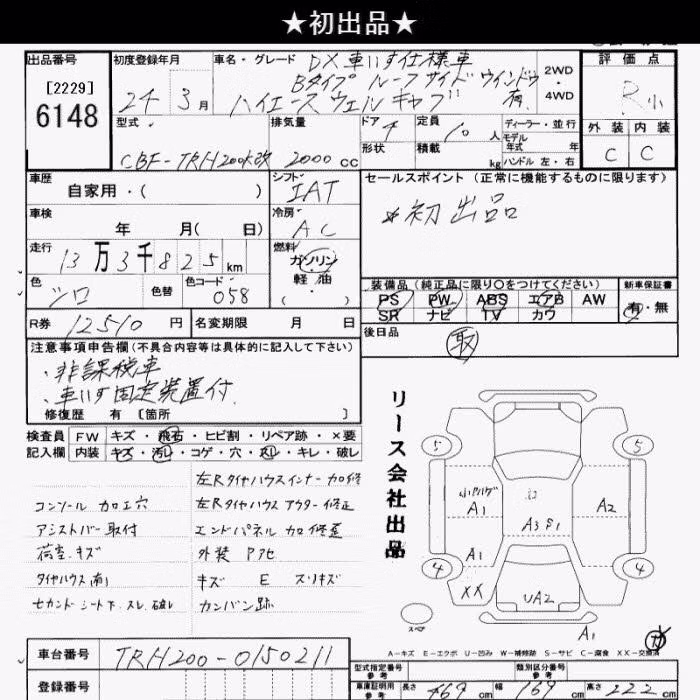 ★初出品★
出品番号
[2229]
6148
初度登録年月
24年3月
車名・グレード
DX 車いす仕様車
Bタイプ ルーフサイドウインドウ有
ハイエースウェルキャブ
2WD
4WD
評価点
R小
外装 内装
C C
型式
CBF-TRH200K改
排気量
2000cc
ドア
4
形状
定員
10人
積載
kg
ディーラー・並行
モデル
年式 年
ハンドル 左・右
車歴
自家用・( )
シフト
IAT
セールスポイント (正常に機能するものに限ります)
*初出品
車検
年 月( 日)
冷房
AC
走行
13万3千825km
燃料
ガソリン
軽油
( )
色
シロ
色替
色コード
058
装備品(純正品に限り○をつけてください)
PS PW ABS エアB AW
SR ナビ TV カワ
新車保証書
有・無
R券
12510円
名変期限 月 日
後日品
取
注意事項申告欄(不具合内容等は具体的に記入して下さい)
・非課税車
・車いす固定装置付
修復歴 有 [箇所 ]
検査員
記入欄
FW キズ・飛石・ヒビ割・リペア跡・×要
内装 キズ・汚レ・コゲ・穴・スレ・キレ・破レ
コンソール 加工穴
アシストバー取付
荷室キズ
タイヤハウス
セカンドシート下スレ破レ
左Rタイヤハウスインナー加修
左Rタイヤハウスアウター修正
エンドパネル加修歪
外装 Pアセ
キズ E スリキズ
カンバン跡
リース会社出品
5 5
小カリハゲ
A1
A3 P1
A2
A1
4 4
XX
UA2
A1
スペア
A-キズ E-エクボ U-凹み W-補修跡 S-サビ C-腐食 XX-交換済
車台番号
TRH200-0150211
登録番号
型式指定番号
参考
類別区分番号
参考
車庫証明用
参考
長さ 469cm 幅 169cm 高さ 222cm